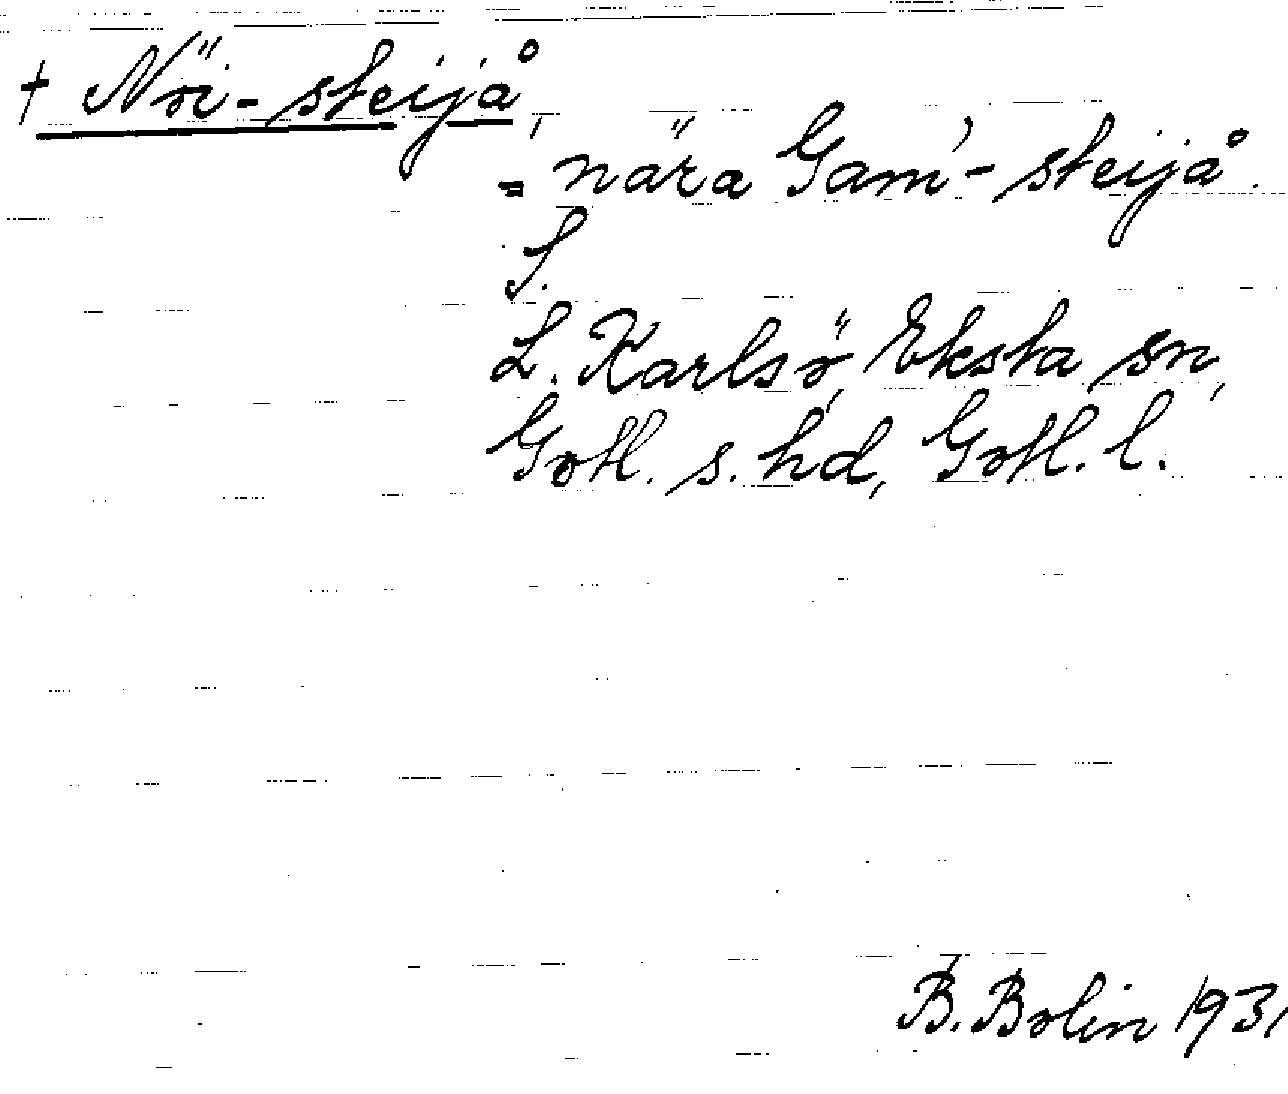 † Nöi-steijå
= nära Gam'-steijå.
S.
L. Karlsö, Eksta sn,
Gotl. s. hd, Gotl. l.
B. Bolin 1931